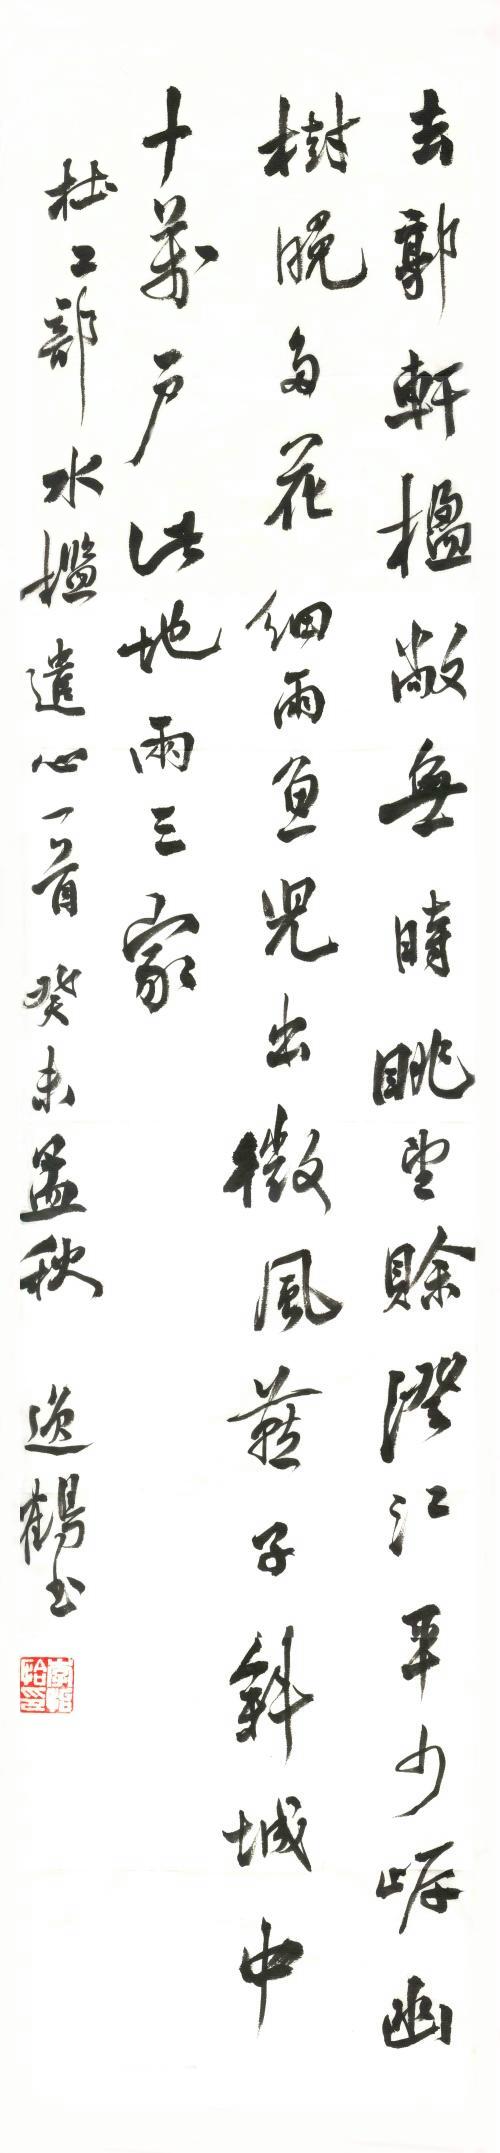 去郭軒楹敞無時眺望賒澄江平少岸幽
樹晚多花細雨魚兒出微風燕子斜城中
十萬戶此地兩三家
杜工部水檻遣心一首 癸未孟秋 逸鶴書